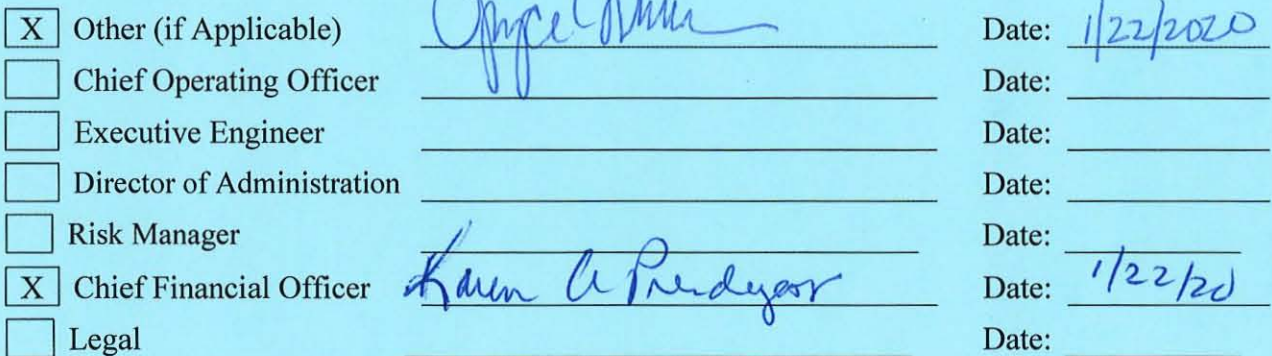 X Other (if Applicable) Date: 1/22/2020
Chief Operating Officer Date:
Executive Engineer Date:
Director of Administration Date:
Risk Manager Date:
X Chief Financial Officer Karen A Date: 1/22/20
Legal Date: